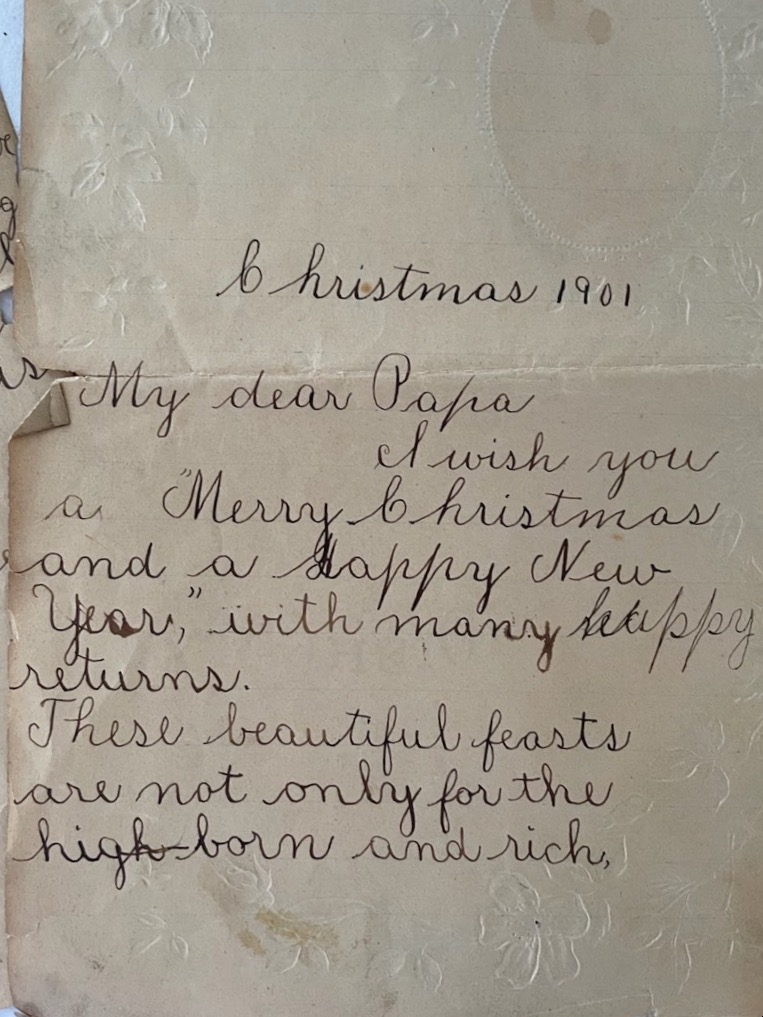 Christmas 1901
My dear Papa
I wish you
a "Merry Christmas
and a Happy New
Year," with many happy
returns.
These beautiful feasts
are not only for the
high-born and rich,